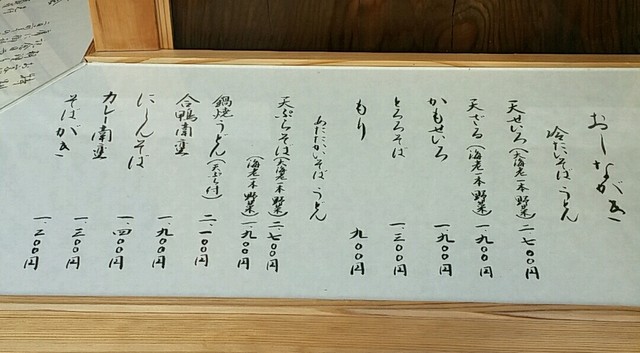 おしながき
冷たいそば うどん
天せいろ(大海老一本 野菜) 二、七〇〇円
天ざる(海老一本 野菜) 一、九〇〇円
かもせいろ 一、九〇〇円
とろろそば 一、三〇〇円
もり 九〇〇円
あたたかいそば うどん
天ぷらそば(大海老一本 野菜) 二、七〇〇円
(海老一本 野菜) 一、九〇〇円
鍋焼うどん(天ぷら付) 二、一〇〇円
合鴨南蛮 一、九〇〇円
にしんそば 一、四〇〇円
カレー南蛮 一、三〇〇円
そばがき 一、二〇〇円